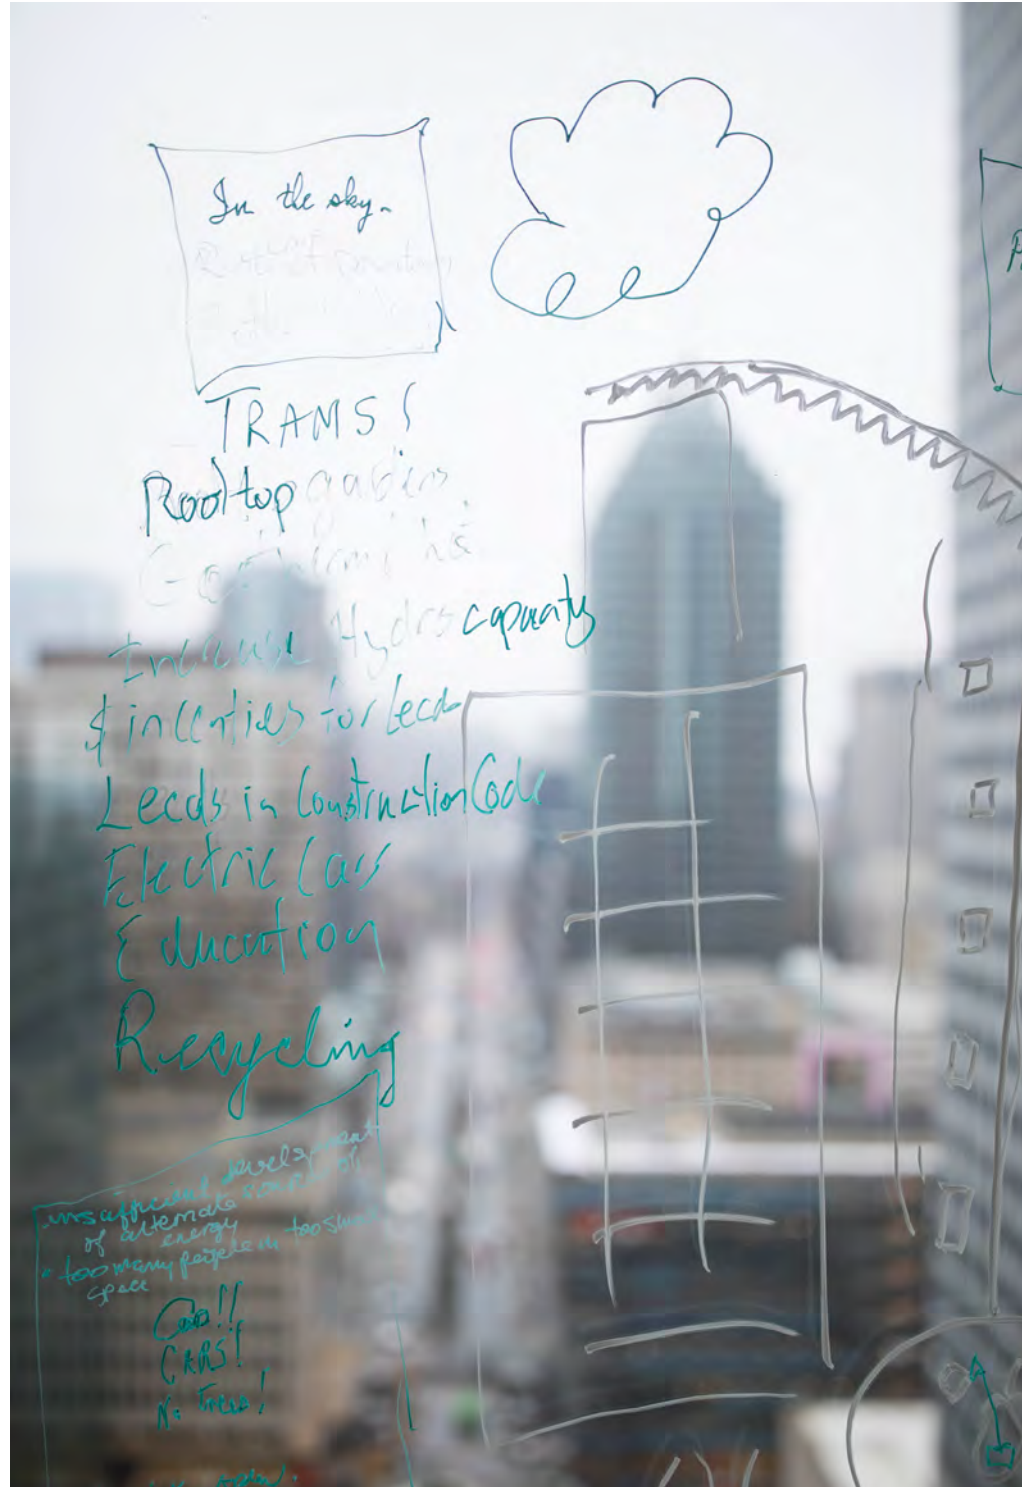 In the sky.
TRAMS!
Rooftop gardens
Increase Hydro capacity
$ incenties for Leeds
Leeds in Construction Code
Electric Cars
Education
Recycling
insufficient development
of alternate sources of
energy
• too many people in too small
space
CARS!
No Trees!